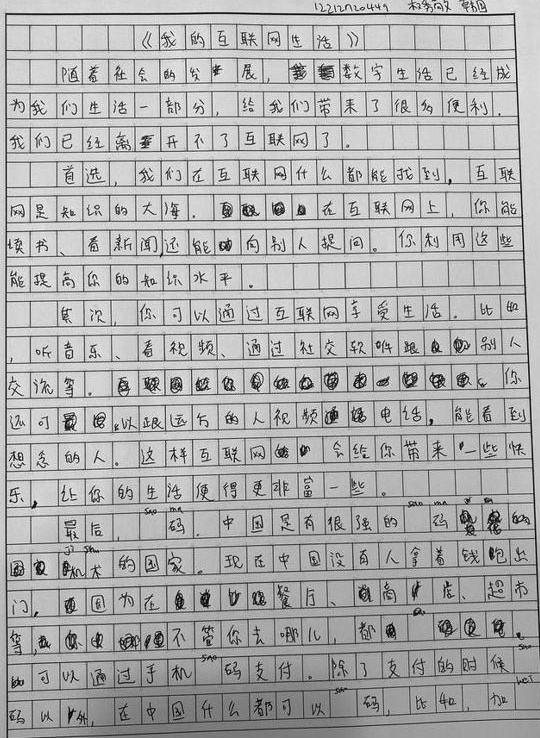 12212120449 韩国
《我的互联网生活》
随着社会的发展，数字生活已经成
为我们生活一部分，给我们带来了很多便利.
我们已经离开不了互联网了。
首选，我们在互联网什么都能找到，互联
网是知识的大海. 在互联网上，你能
读书、看新闻,还能向别人提问。你利用这些
能提高你的知识水平。
其次，你可以通过互联网享受生活. 比如
，听音乐、看视频、通过社交软件跟别人
交流等. 你
还可以跟远方的人视频电话，能看到
想念的人。这样互联网会给你带来一些快
乐，让你的生活便得更非富一些。
最后，sao ma码. 中国是有很强的sao ma码的
国家 ji shu机术的国家. 现在中国没有人拿着钱包出
门，因为在餐厅、商店、超市
等, 不管你去哪儿，都
可以通过手机sao码支付. 除了支付的时候sao
码以外，在中国什么都可以sao码，比如，加wei